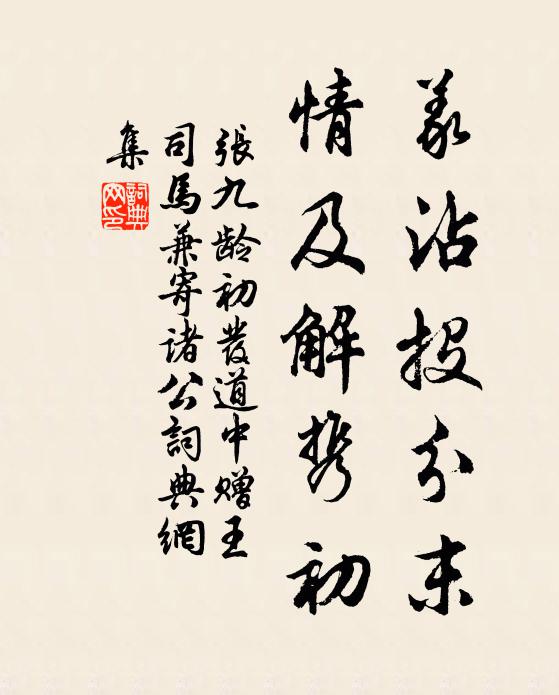 義沾投分末
情及解携初
張九齡初發道中贈王
司馬兼寄諸公詞典網
集
詞典
网印